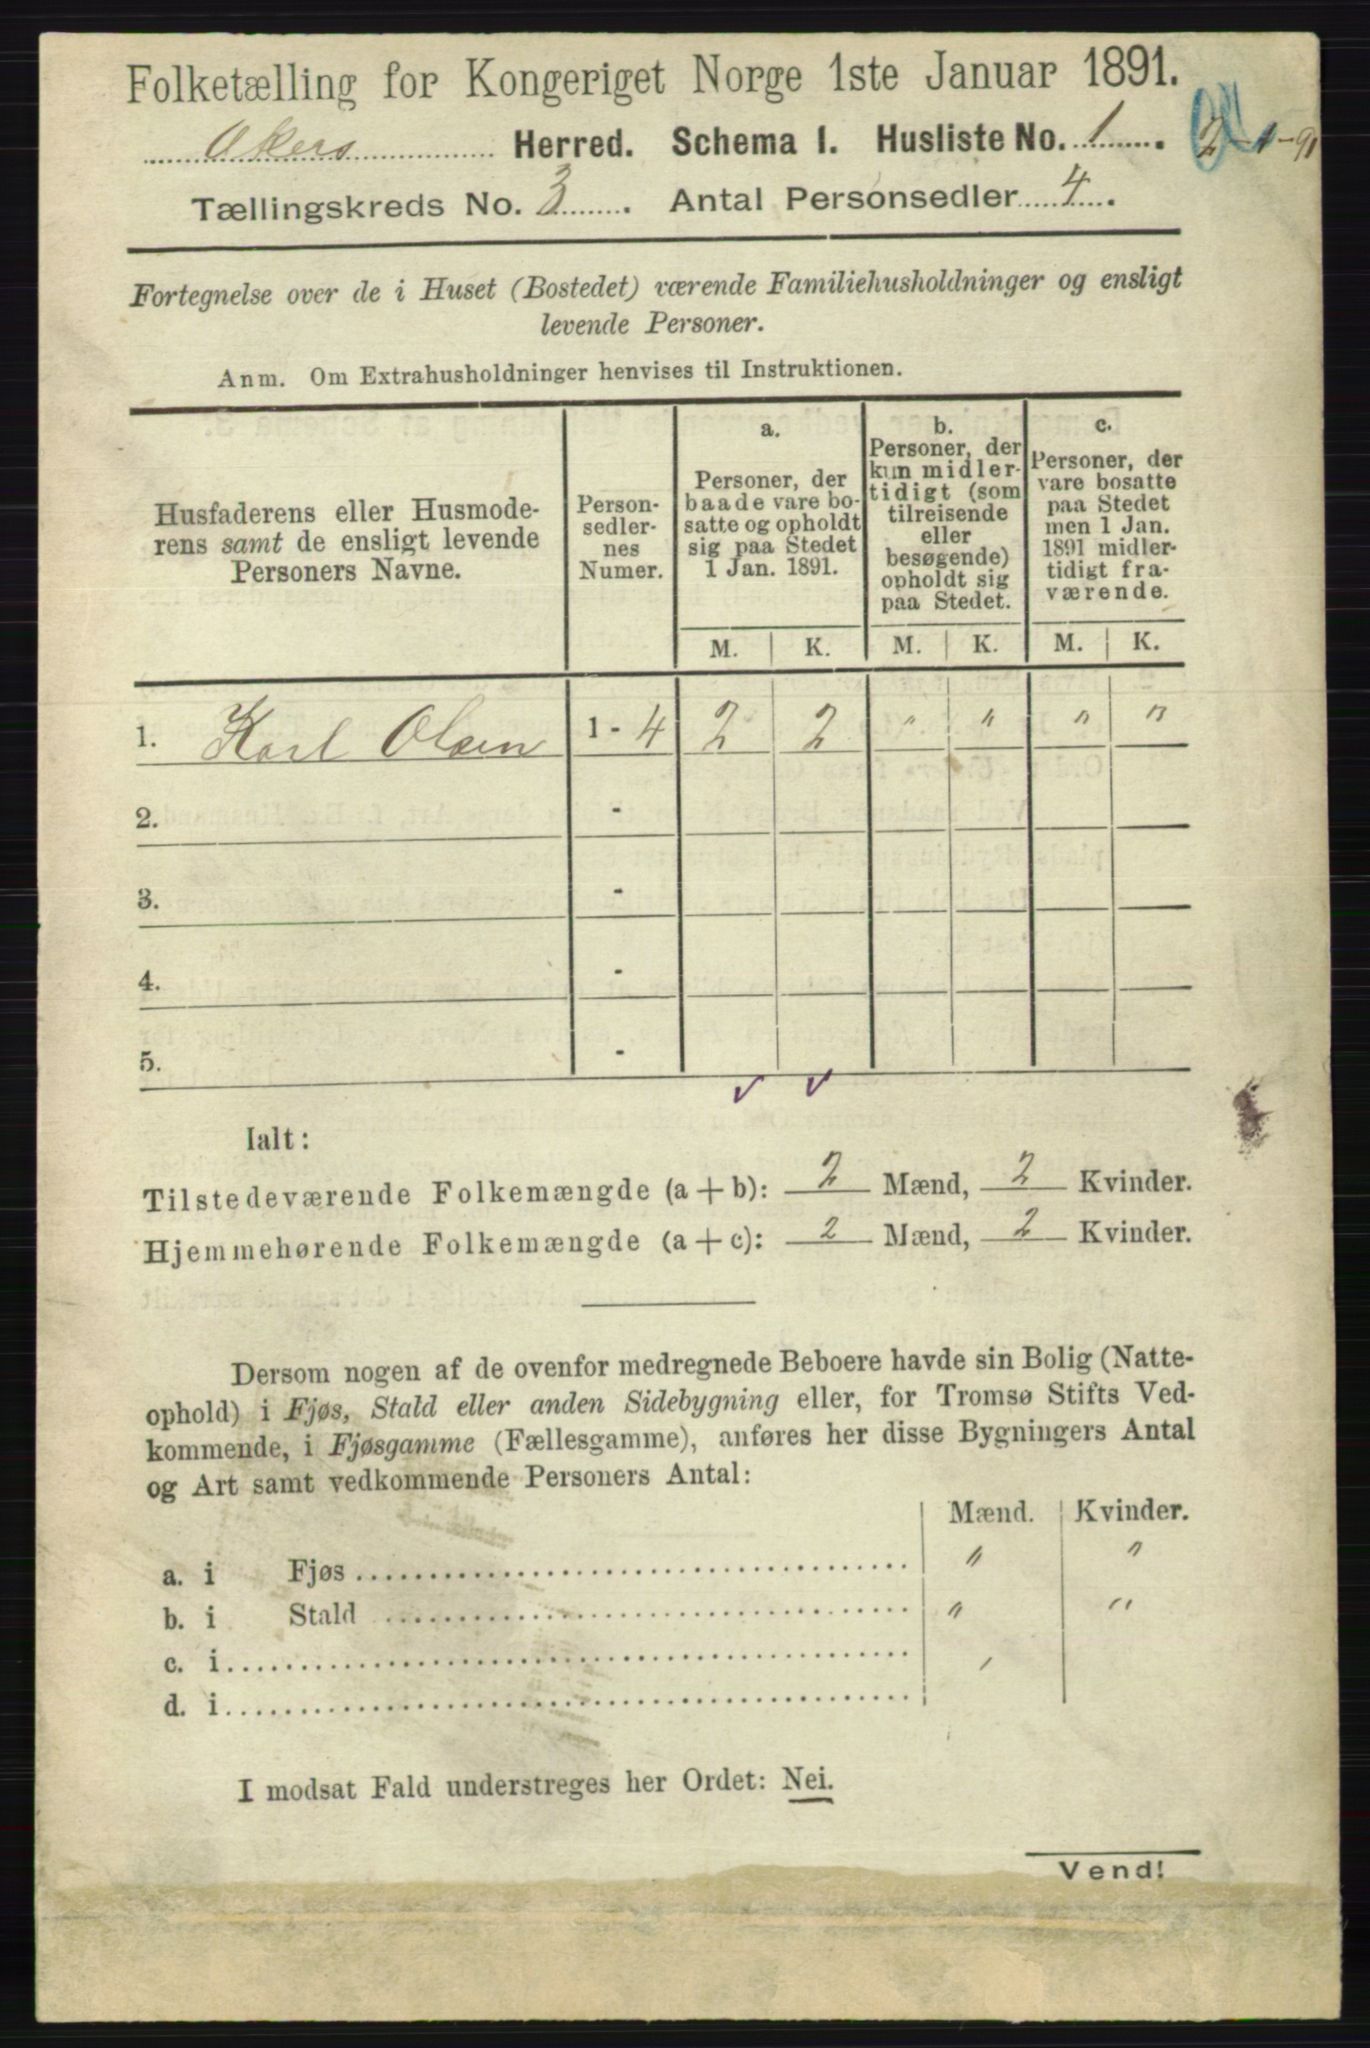 Folketælling for Kongeriget Norge 1ste Januar 1891.
Akers Herred. Schema I. Husliste No. 1.
Tællingskreds No. 3. Antal Personsedler 4.
Fortegnelse over de i Huset (Bostedet) værende Familiehusholdninger og ensligt
levende Personer.
Anm. Om Extrahusholdninger henvises til Instruktionen.
Husfaderens eller Husmode-
rens samt de ensligt levende
Personers Navne.
Person-
sedler-
nes
Numer.
a.
Personer, der
baade vare bo-
satte og opholdt
sig paa Stedet
1 Jan. 1891.
b.
Personer, der
kun midler-
tidigt (som
tilreisende
eller
besøgende)
opholdt sig
paa Stedet.
c.
Personer, der
vare bosatte
paa Stedet
men 1 Jan.
1891 midler-
tidigt fra-
værende.
M. K. M. K. M. K.
1. Karl Olsen 1 - 4 2 2 " " " "
2. -
3. -
4. -
5. -
Ialt:
Tilstedeværende Folkemængde (a + b): 2 Mænd, 2 Kvinder.
Hjemmehørende Folkemængde (a + c): 2 Mænd, 2 Kvinder.
Dersom nogen af de ovenfor medregnede Beboere havde sin Bolig (Natte-
ophold) i Fjøs, Stald eller anden Sidebygning eller, for Tromsø Stifts Ved-
kommende, i Fjøsgamme (Fællesgamme), anføres her disse Bygningers Antal
og Art samt vedkommende Personers Antal:
Mænd. Kvinder.
a. i Fjøs " "
b. i Stald " "
c. i
d. i
I modsat Fald understreges her Ordet: Nei.
Vend!